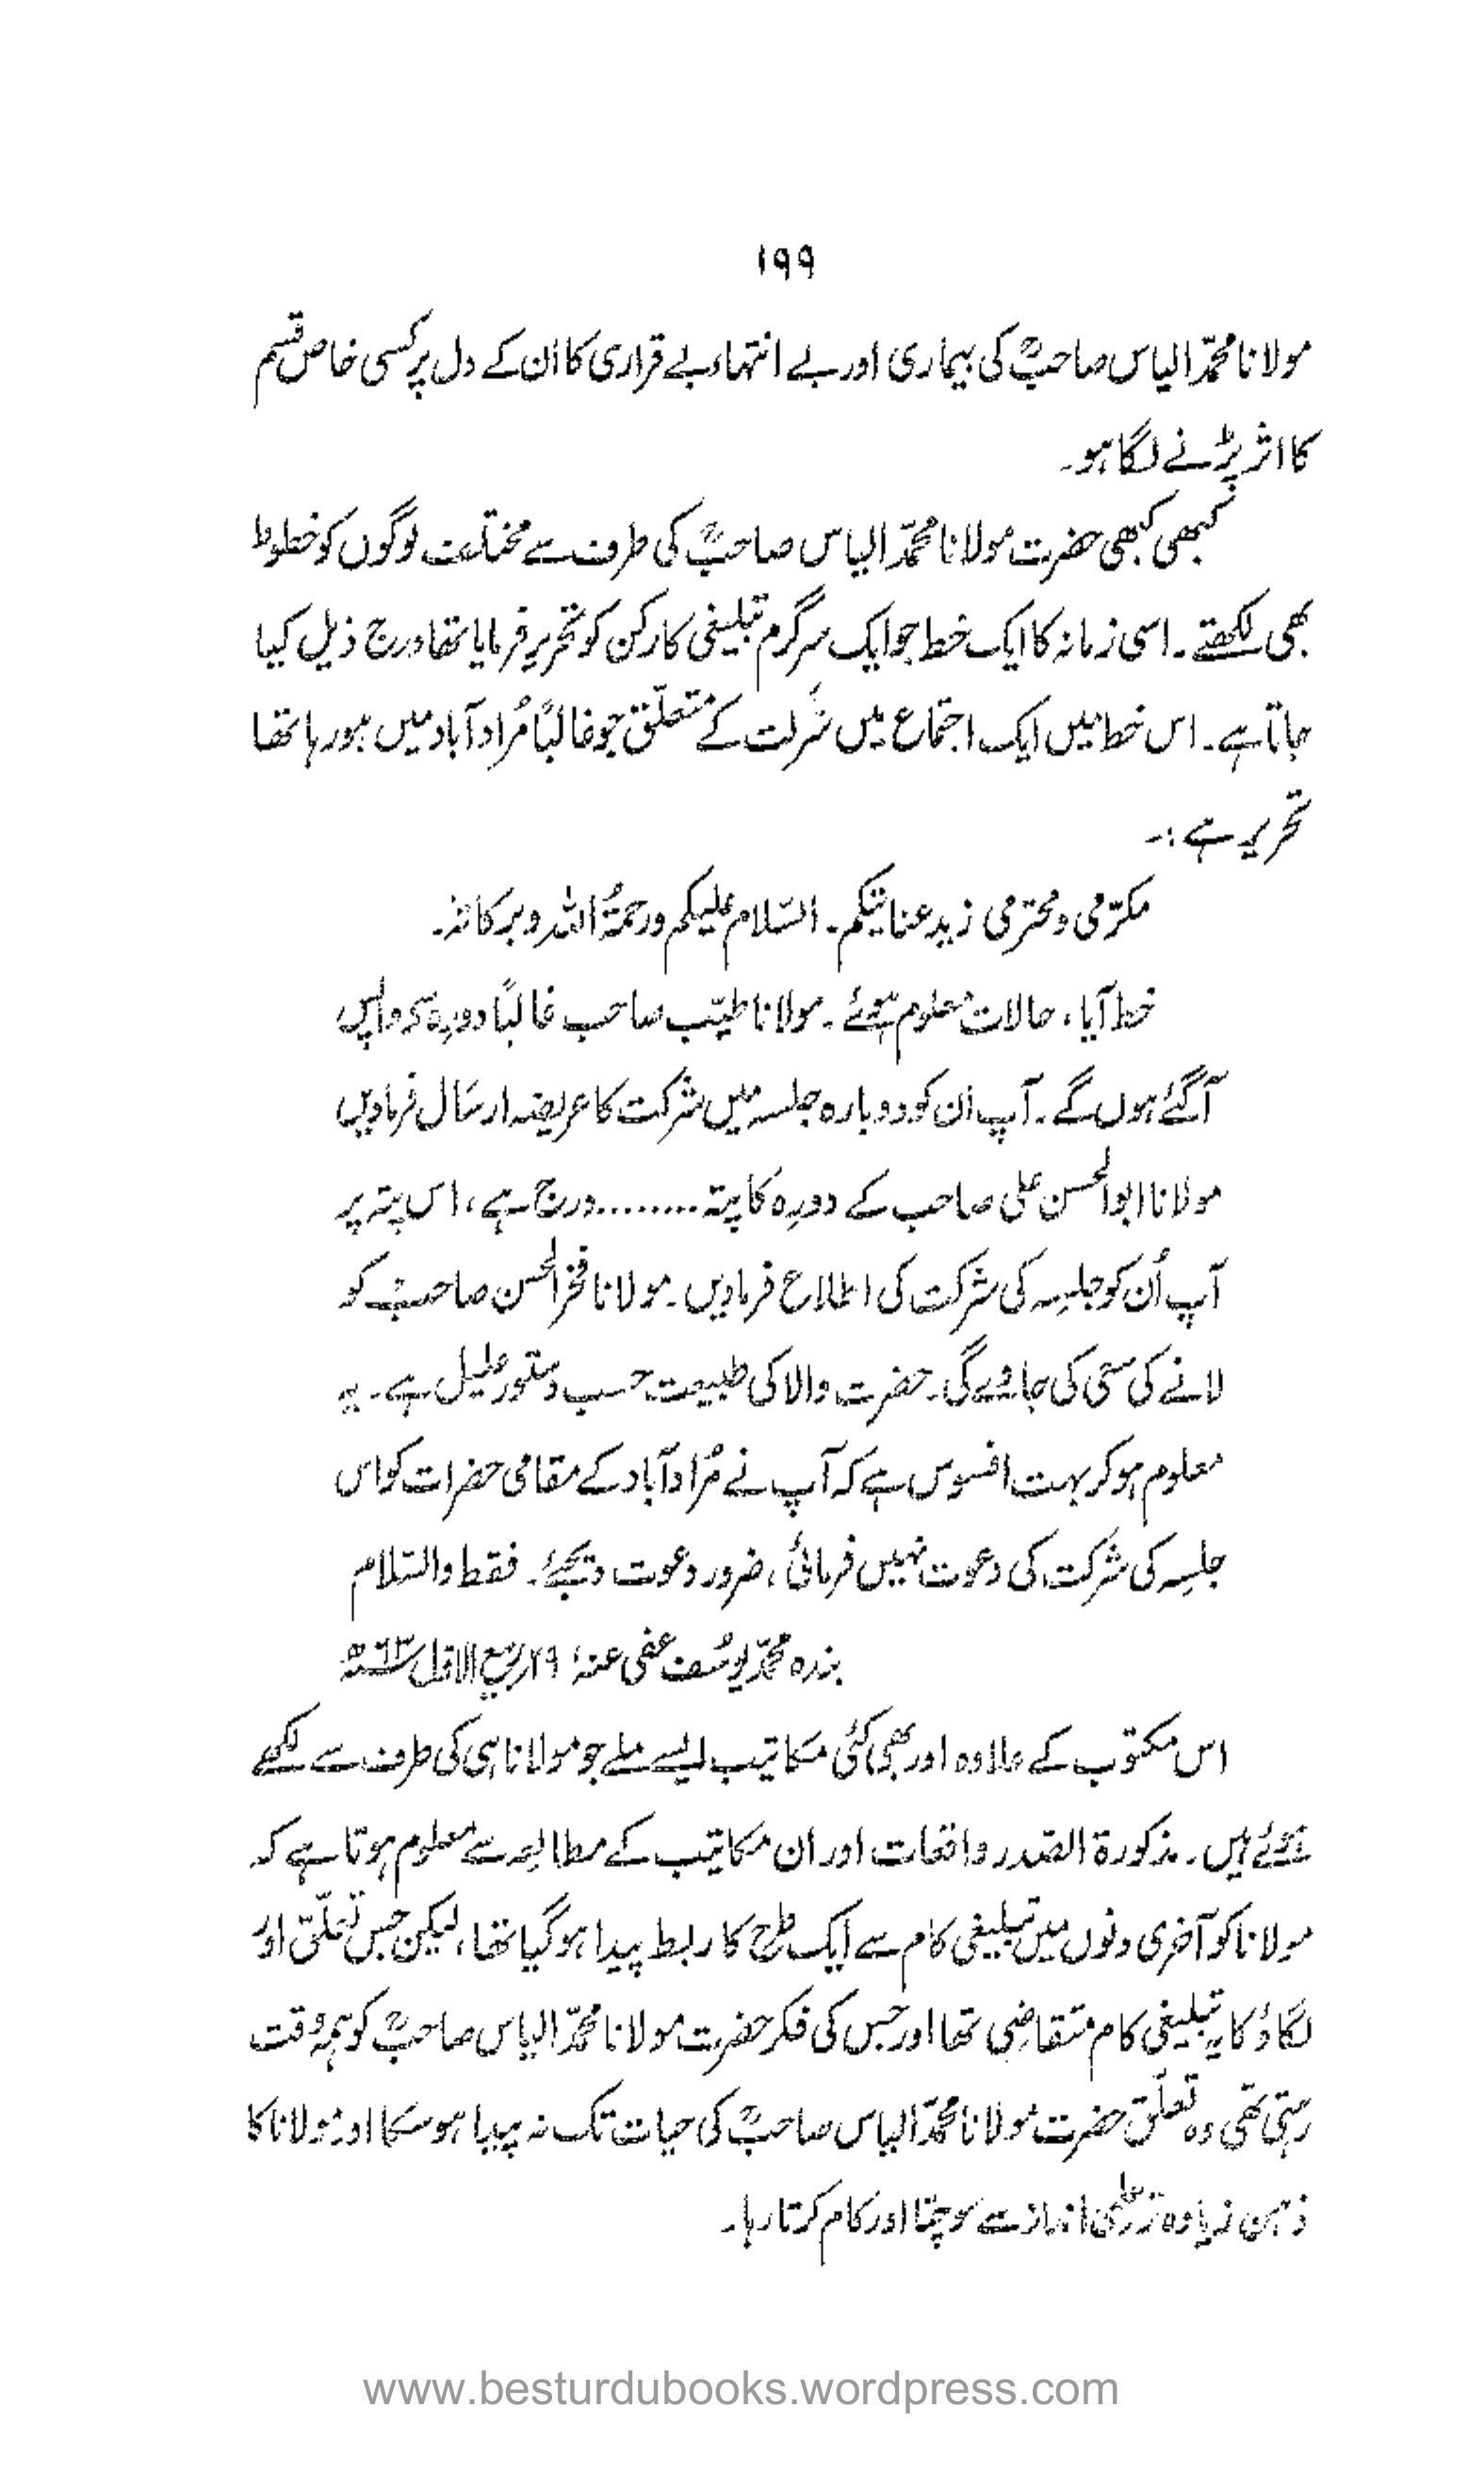 ۱۹۹
مولانا محمّد الیاس صاحبؒ کی بیماری اور بے انتہاء بے قراری کا ان کے دل پر کسی خاص قسم
کا اثر پڑنے لگا ہو۔
کبھی کبھی حضرت مولانا محمّد الیاس صاحبؒ کی طرف سے مختلف لوگوں کو خطوط
بھی لکھتے۔ اسی زمانہ کا ایک خط جو ایک سرگرم تبلیغی کارکن کو تحریر فرمایا تھا درج ذیل کیا
جاتا ہے۔ اس خط میں ایک اجتماع میں شرکت کے متعلّق جو غالبًا مُراد آباد میں ہو رہا تھا
تحریر ہے :۔
مکرّمی و محترمی زید عنایتکم۔ السّلام علیکم ورحمۃُ اللہ وبرکاتہٗ۔
خط آیا، حالات معلوم ہوئے۔ مولانا طیّب صاحب غالبًا دورہ کر واپس
آگئے ہوں گے۔ آپ ان کو دوبارہ جلسہ میں شرکت کا عریضہ ارسال فرمادیں
مولانا ابوالحسن علی صاحب کے دورہ کا پتہ ......... درج ہے، اس پتہ پر
آپ اُن کو جلسہ کی شرکت کی اطلاع فرمادیں۔ مولانا فخر الحسن صاحب کو
لانے کی سعی کی جاوے گی۔ حضرت والا کی طبیعت حسب دستور علیل ہے۔ یہ
معلوم ہو کر بہت افسوس ہے کہ آپ نے مُراد آباد کے مقامی حضرات کو اس
جلسہ کی شرکت کی دعوت نہیں فرمائی، ضرور دعوت دیجئے۔ فقط والسّلام
بندہ محمّد یوسُف عفی عنہٗ ۲۹ ربیع الاوّل ۶۳ھ
اس مکتوب کے علاوہ اور بھی کئی مکاتیب ایسے ملے جو مولانا ہی کی طرف سے لکھے
ہوئے ہیں۔ مذکورۃ الصّدر واقعات اور ان مکاتیب کے مطالعہ سے معلوم ہوتا ہے کہ
مولانا کو آخری دنوں میں تبلیغی کام سے ایک طرح کا ربط پیدا ہو گیا تھا، لیکن جس تعلّق اور
لگاؤ کا یہ تبلیغی کام متقاضی تھا اور جس کی فکر حضرت مولانا محمّد الیاس صاحبؒ کو ہمہ وقت
رہتی تھی وہ تعلّق حضرت مولانا محمّد الیاس صاحبؒ کی حیات تک نہ پیدا ہو سکا اور مولانا کا
ذہن زیادہ تر علمی انداز سے سوچتا اور کام کرتا رہا۔
www.besturdubooks.wordpress.com